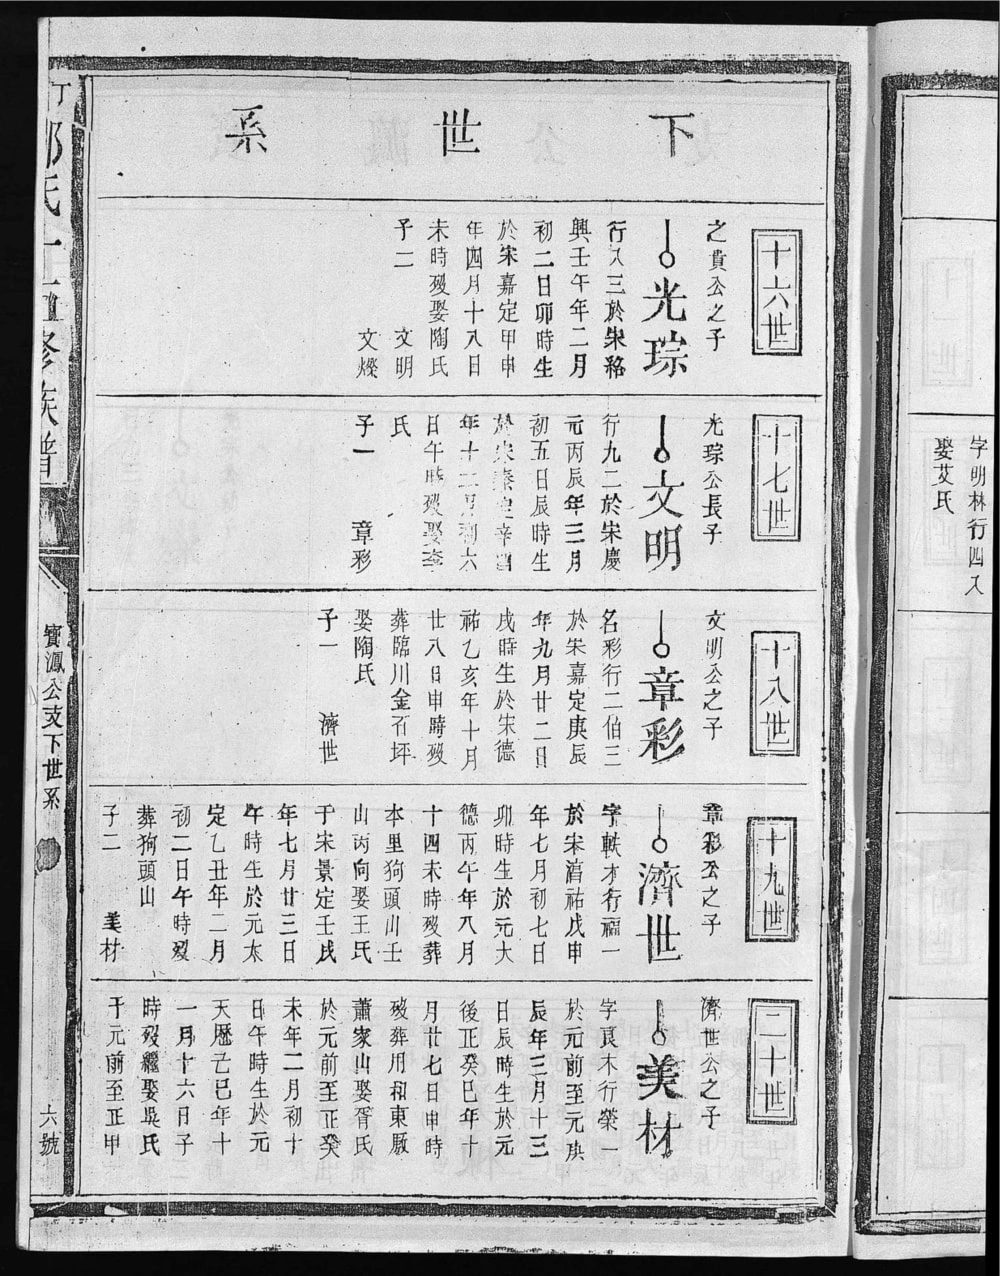 字明林行四入
娶艾氏
下世系
十六世
之貴公之子
光琮
行八三於宋
興壬午年二月
初二日卯時生
於宋嘉定甲申
年四月十八日
未時歿娶陶氏
子二 文明
文燦
十七世
光琮公長子
文明
行九二於宋慶
元丙辰年三月
初五日辰時生
於宋
年十二月初六
日午時歿娶李
氏
子一 章彩
十八世
文明公之子
章彩
名彩行二伯三
於宋嘉定庚辰
年九月廿二日
戌時生於宋德
祐乙亥年十月
廿八日申時歿
葬臨川金石坪
娶陶氏
子一 濟世
十九世
章彩公之子
濟世
字軼才行福一
於宋淳祐戊申
年七月初七日
卯時生於元大
德丙午年八月
十四未時歿葬
本里狗頭山壬
山丙向娶王氏
于宋景定壬戌
年七月廿三日
午時生於元太
定乙丑年二月
初二日午時歿
葬狗頭山
子二 美材
二十世
濟世公之子
美材
字良木行榮一
於元前至元庚
辰年三月十三
日辰時生於元
後正癸巳年十
月廿七日申時
歿葬用和東厰
蕭家山娶胥氏
於元前至正癸
未年二月初十
日午時生於元
天歷己巳年十
一月十六日子
時歿繼娶吳氏
于元前至正甲
氏五修族譜
寶鳳公支下世系
六號